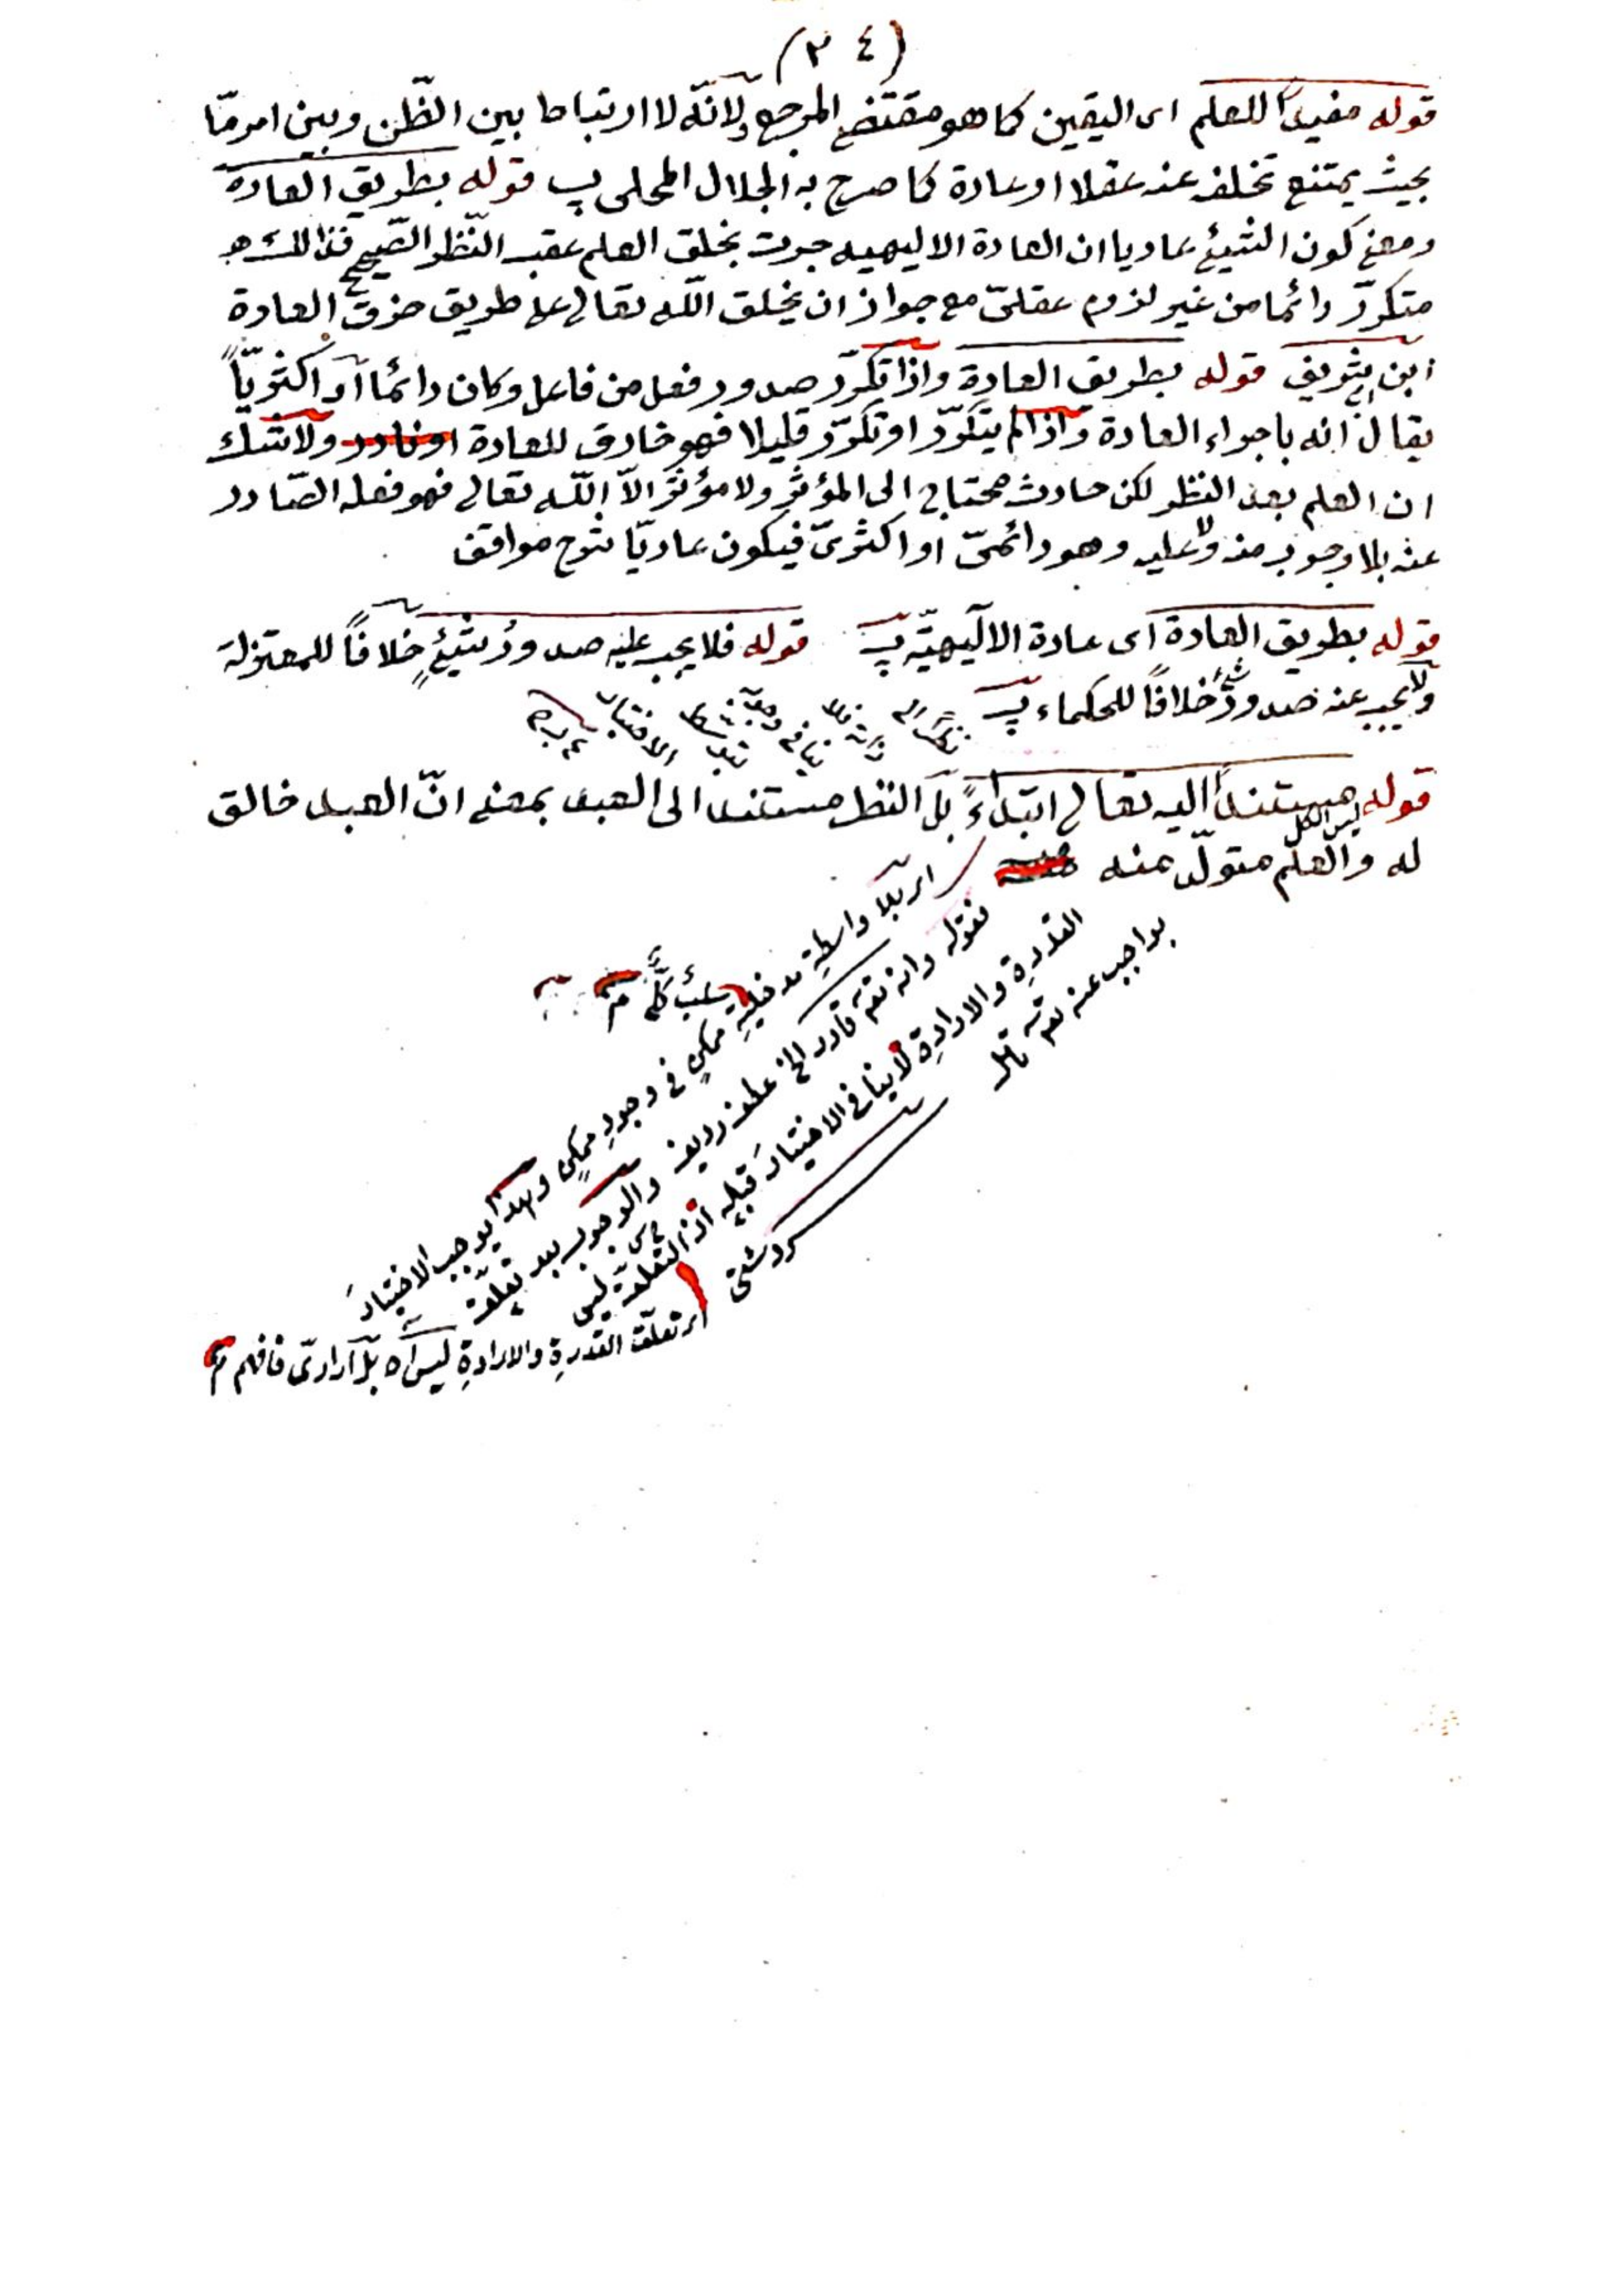 (٣٤)
قوله مفيداً للعلم اى اليقين كما هو مقتضى المرجع ولانّه لا ارتباط بين الظّن وبين امر مّا
بحيث يمتنع تخلفه عنه عقلا او عادة كما صرح به الجلال المحلى پ قوله بطريق العادة
ومعنى كون الشيئ عاديا ان العادة الاليهيه جرت بخلق العلم عقب النّظر الصّحيح فذالك
متكرّر دائما من غير لزوم عقلىّ مع جواز ان يخلق اللّه تعالى على طريق خرق العادة
ابن قوله بطريق العادة واذا تكرّر صدور فعل من فاعل وكان دائما او اكثريّاً
يقال انه باجراء العادة واذا لم يتكرّر او تكرّر قليلا فهو خارق للعادة او نادر ولا شك
ان العلم بعد النظر لكن حادث محتاج الى المؤثر ولا مؤثر الاّ اللّه تعالى فهو فعله الصّادر
عنه بلا وجوب منه ولا عليه وهو دائمىّ او اكثرىّ فيكون عاديّا شرح مواقف
قوله بطريق العادة اى عادة الآليهيّه پ قوله فلا يجب عليه صدورُ شيئٍ خلافًا للمعتزلة
ولا يجب عنه صدور شئ خلافًا للحكماء پ
قوله مستنداً اليه تعالى ابتداءً بل النظر مستند الى العبد بمعنى انّ العبد خالق
ليس الكل
له والعلم متولّد عنه
اى بلا واسطةِ مدخليةِ ممكنٍ فى وجودِ ممكنٍ وهذا يوجب الاختيارَ
فقوله وانه تع قادر الخ عطف رديف والوجوب بعد تعلّق
القدرةِ والارادةِ لا ينافى الاختيارَ قبله اذ التعلّق ليس
بواجب عنه تع
اى تعلّق القدرةِ والارادةِ ليس بل ارادىّ فافهم